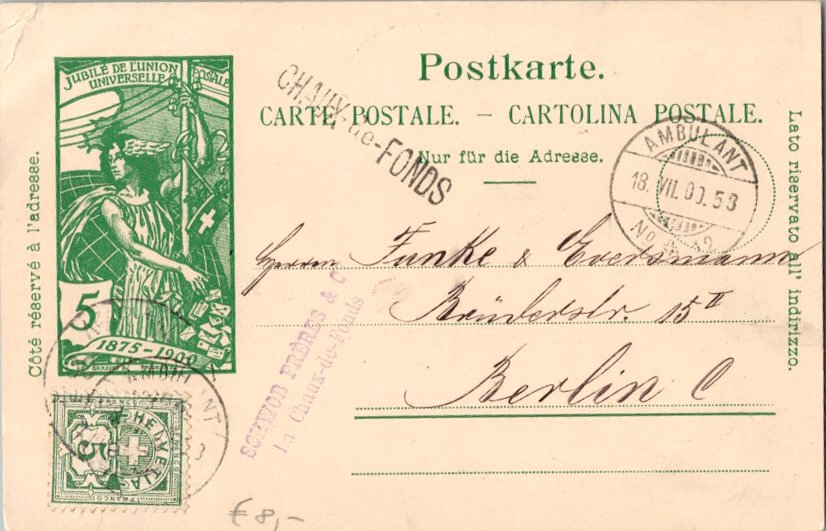 JUBILÉ DE L'UNION
UNIVERSELLE POSTALE
5
1875-1900
Postkarte.
CARTE POSTALE. – CARTOLINA POSTALE.
Nur für die Adresse.
Côté réservé à l'adresse.
Lato riservato all' indirizzo.
CHAUX-de-FONDS
AMBULANT
18. VII. 00. 5
No
Herrn Funke & Eversmann
Brüderstr. 15 II
Berlin C
SCHWOB FRÈRES & Cie
La Chaux-de-Fonds
AMBULANT
HELVETIA
5
FRANCO
€ 8,-